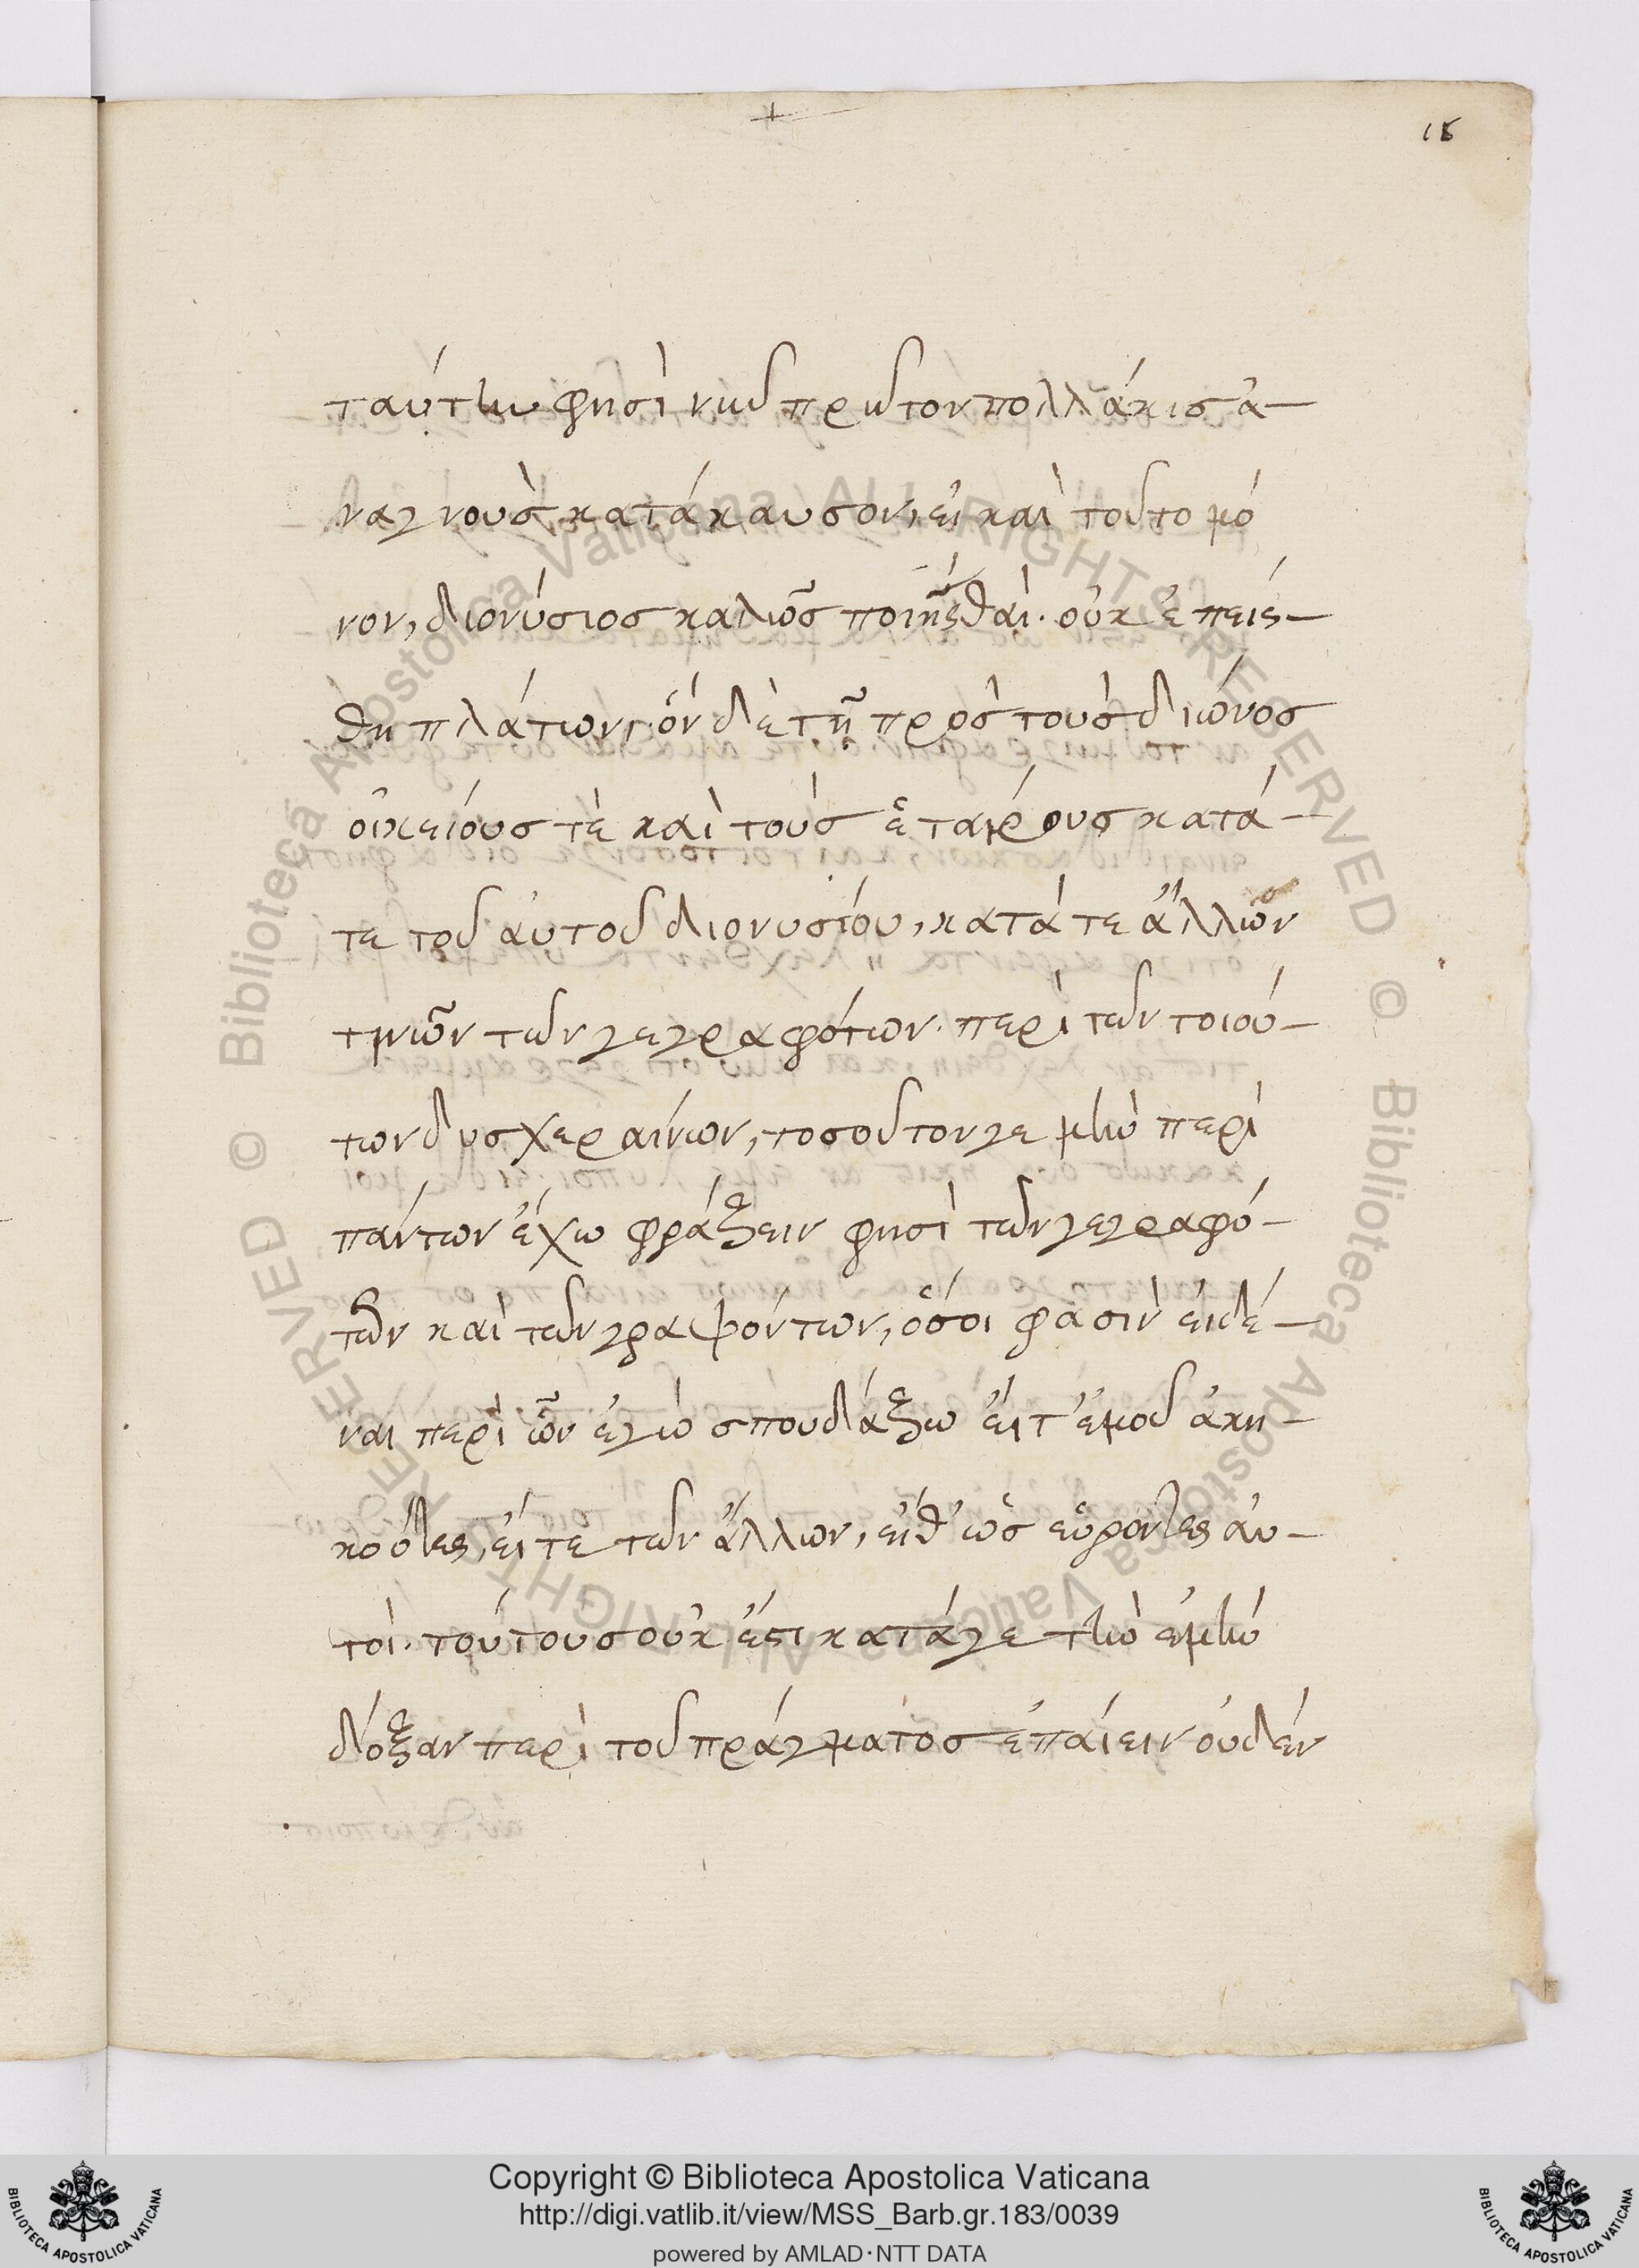 15
ταύτην φησὶ νῦν πρῶτον πολλάκις ἀ-
ναγνοὺς κατάκαυσον, εἰ καὶ τοῦτο μό
νον, διονύσιος καλῶς ποιῆσθαι. οὐκ ἐπείσ-
θη πλάτων, ὅν δὲ τῇ πρὸς τοὺς διώνος
οἰκείους τὲ καὶ τοὺς ἑταίρους κατά-
τε τοῦ αὐτοῦ διονυσίου, κατά τε ἄλλων
τινῶν τῶν γεγραφότων. περὶ τῶν τοιού-
των δυσχεραίνων, τοσοῦτον γε μὴν περὶ
πάντων ἔχω φράξειν φησὶ τῶν γεγραφό-
των καὶ τῶν γραψόντων, ὅσοι φασὶν εἰδέ-
ναι περὶ ὧν ἐγὼ σπουδάξω εἴτ' ἐμοῦ ἀκη-
κοότες, εἴτε τῶν ἄλλων, εἴθ' ὡς εὑρόντες αὐ-
τοί. τούτους οὐκ ἔστι κατά γε τὴν ἐμὴν
δόξαν περὶ τοῦ πράγματος ἐπαΐειν οὐδέν
Copyright © Biblioteca Apostolica Vaticana
http://digi.vatlib.it/view/MSS_Barb.gr.183/0039
powered by AMLAD·NTT DATA
BIBLIOTECA APOSTOLICA VATICANA
BIBLIOTECA APOSTOLICA VATICANA
© Biblioteca Apostolica Vaticana ALL RIGHTS RESERVED © Biblioteca Apostolica Vaticana ALL RIGHTS RESERVED